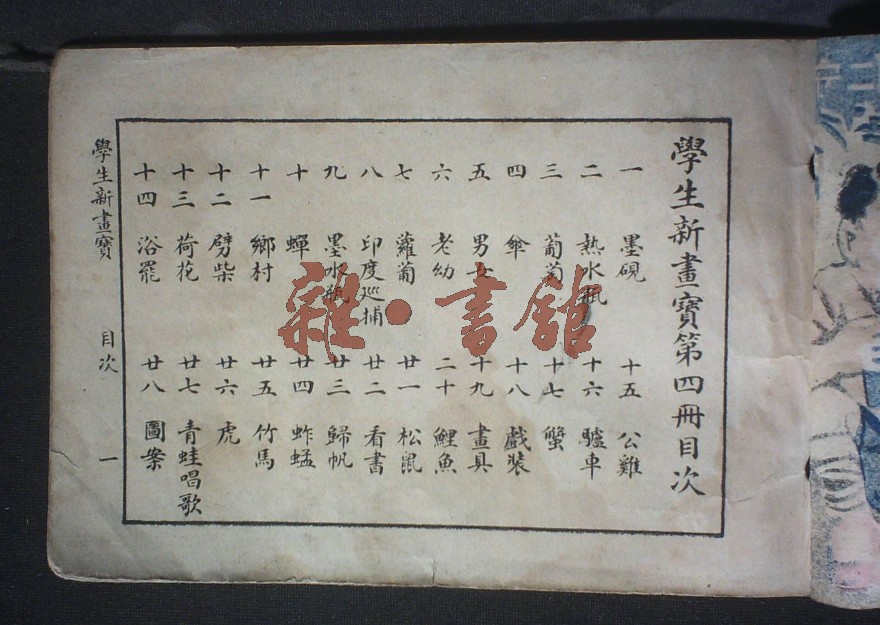 學生新畫寶第四冊目次
一 墨硯 十五 公雞
二 熱水瓶 十六 驢車
三 葡萄 十七 蟹
四 傘 十八 戲裝
五 男女 十九 畫具
六 老幼 二十 鯉魚
七 蘿蔔 廿一 松鼠
八 印度巡捕 廿二 看書
九 墨水瓶 廿三 歸帆
十 蟬 廿四 蚱蜢
十一 鄉村 廿五 竹馬
十二 劈柴 廿六 虎
十三 荷花 廿七 青蛙唱歌
十四 浴罷 廿八 圖案
學生新畫寶 目次 一
雜·書館